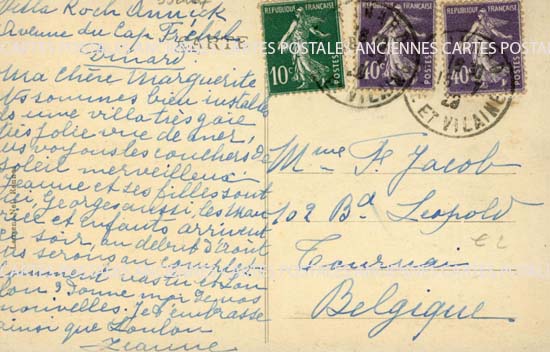 Villa Roch Annick
Avenue du Cap
Dinard
CARTE
Ma chère Marguerite
Ns sommes bien installés
ds une villa très gaie
très jolie vue de mer,
ns voyons les couchers de
soleil merveilleux.
Jeanne et ses filles sont
Georges aussi, les
et enfants arrivent
soir, au début d'août
ns serons au complet.
Comment vas tu et
Donne moi de vos
nouvelles. Je t'embrasse
ainsi que Loulou
Jeanne
REPUBLIQUE FRANÇAISE
10c
POSTES
REPUBLIQUE FRANÇAISE
40c
POSTES
REPUBLIQUE FRANÇAISE
40c
POSTES
ET VILAINE
28
CARTES POSTALES ANCIENNES CARTES POSTALES
Mme F. Jacob
102 Bd Léopold
Tournai
Belgique